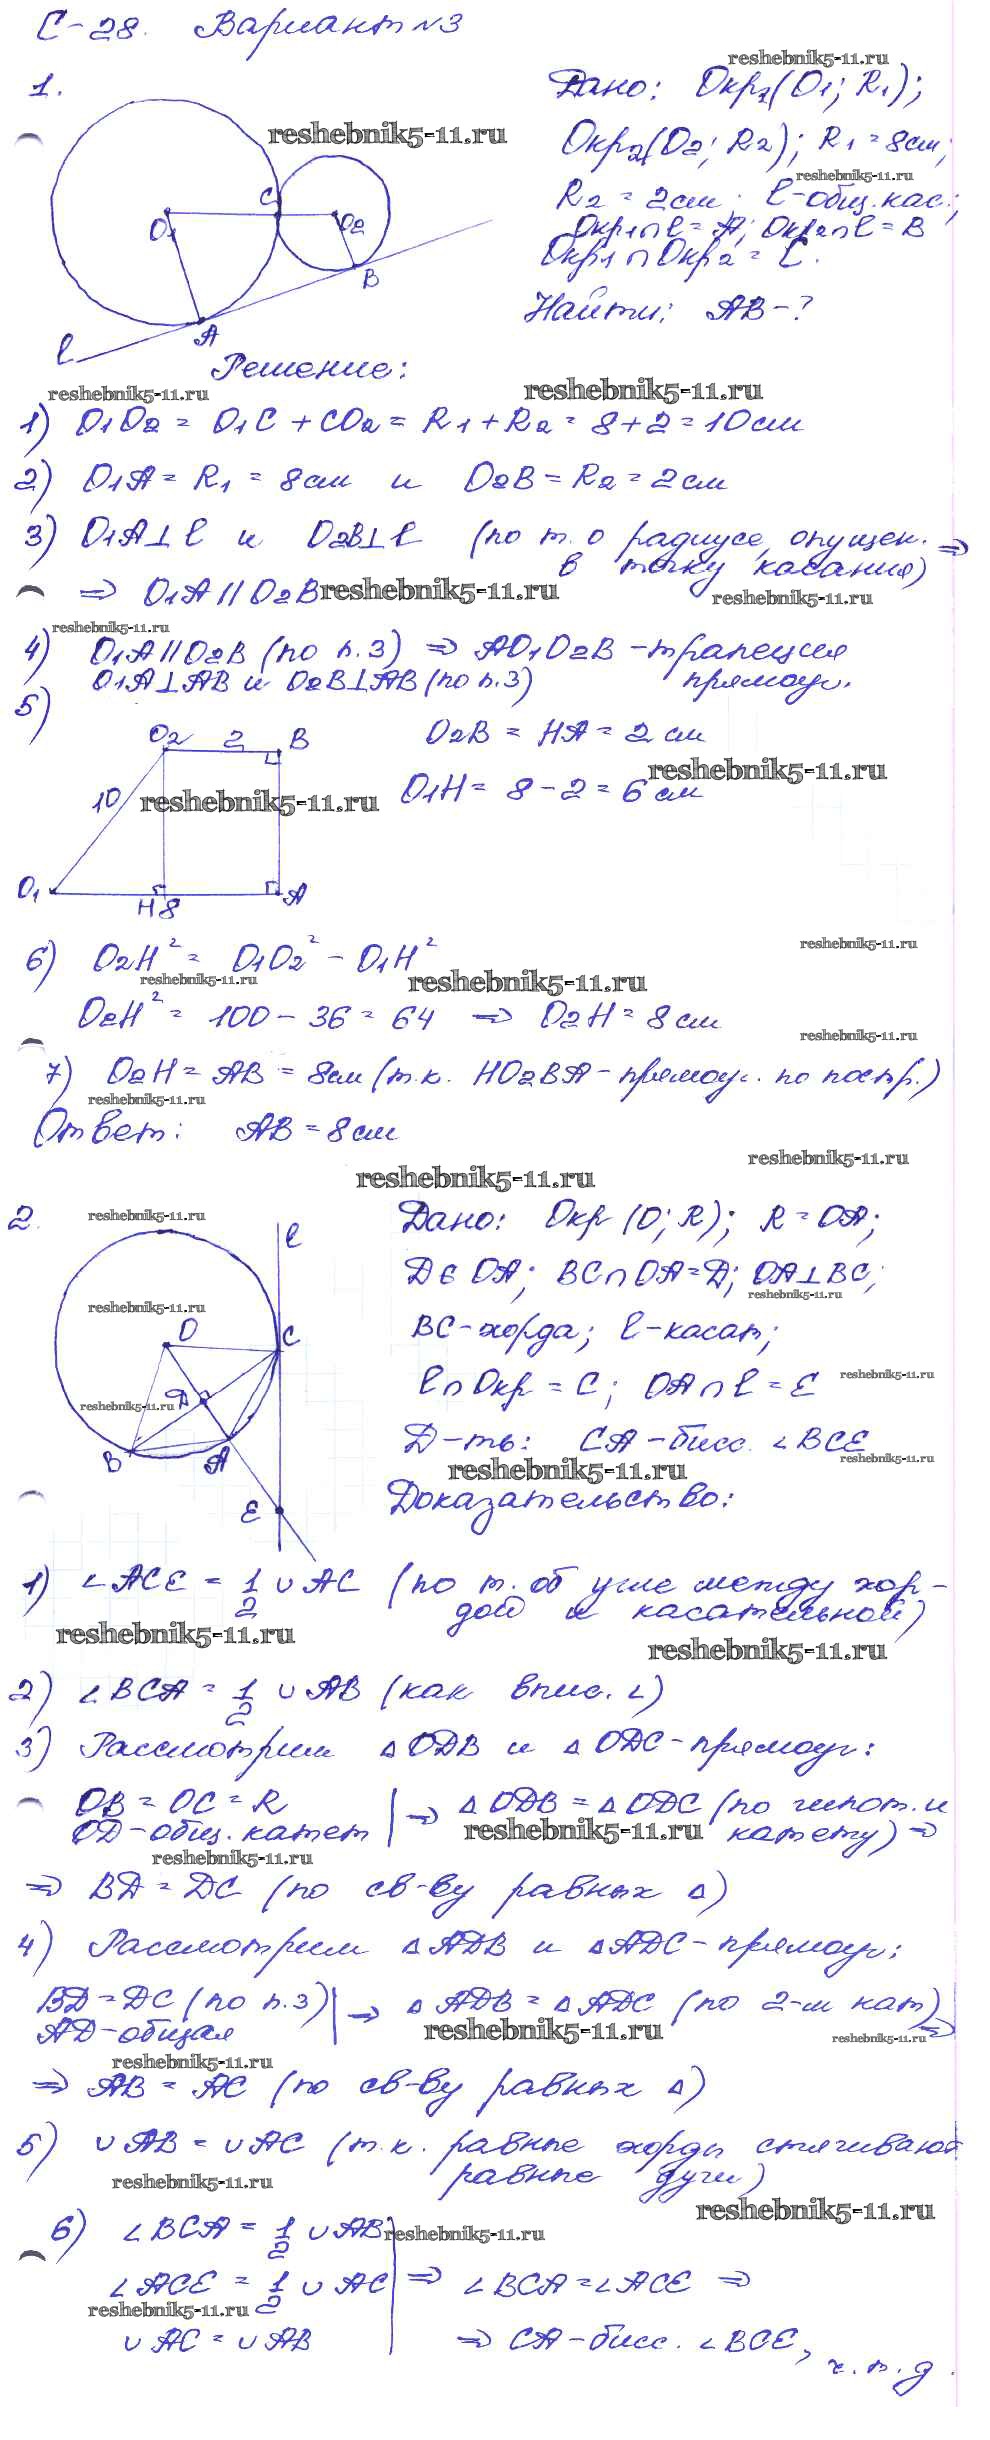 С-28. Вариант №3
1.
Дано: Окр₁(O₁; R₁);
Окр₂(O₂; R₂); R₁ = 8см;
R₂ = 2см; l-общ. кас.;
Окр₁∩l = A; Окр₂∩l = B
Окр₁∩Окр₂ = C.
Найти: AB-?
O₁ C O₂ B A l
Решение:
1) O₁O₂ = O₁C + CO₂ = R₁ + R₂ = 8 + 2 = 10см
2) O₁A = R₁ = 8см и O₂B = R₂ = 2см
3) O₁A⊥l и O₂B⊥l (по т. о радиусе, опущен. ⇒
в точку касания)
⇒ O₁A || O₂B
4) O₁A || O₂B (по п.3) ⇒ AO₁O₂B - трапеция
O₁A⊥AB и O₂B⊥AB (по п.3) прямоуг.
5)
O₂ 2 B
O₂B = HA = 2см
10
O₁H = 8 - 2 = 6см
O₁ H 8 A
6) O₂H² = O₁O₂² - O₁H²
O₂H² = 100 - 36 = 64 ⇒ O₂H = 8см
7) O₂H = AB = 8см (т.к. HO₂BA - прямоуг. по постр.)
Ответ: AB = 8см
2.
Дано: Окр (O; R); R = OA;
D∈OA; BC∩OA = D; OA⊥BC;
BC-хорда; l-касат;
l∩Окр = C; OA∩l = E
Д-ть: CA-бисс. ∠BCE
O C l D B A E
Доказательство:
1) ∠ACE = 1/2 ∪AC (по т. об угле между хор-
дой и касательной)
2) ∠BCA = 1/2 ∪AB (как впис. ∠)
3) Рассмотрим △ODB и △ODC-прямоуг:
OB = OC = R | ⇒ △ODB = △ODC (по гипот. и
OD-общ. катет | катету) ⇒
⇒ BD = DC (по св-ву равных △)
4) Рассмотрим △ADB и △ADC-прямоуг:
BD = DC (по п.3) | ⇒ △ADB = △ADC (по 2-м кат)
AD-общая | ⇒
⇒ AB = AC (по св-ву равных △)
5) ∪AB = ∪AC (т.к. равные хорды стягивают
равные дуги)
6) ∠BCA = 1/2 ∪AB
∠ACE = 1/2 ∪AC | ⇒ ∠BCA = ∠ACE ⇒
∪AC = ∪AB | ⇒ CA-бисс. ∠BCE,
ч.т.д.
reshebnik5-11.ru